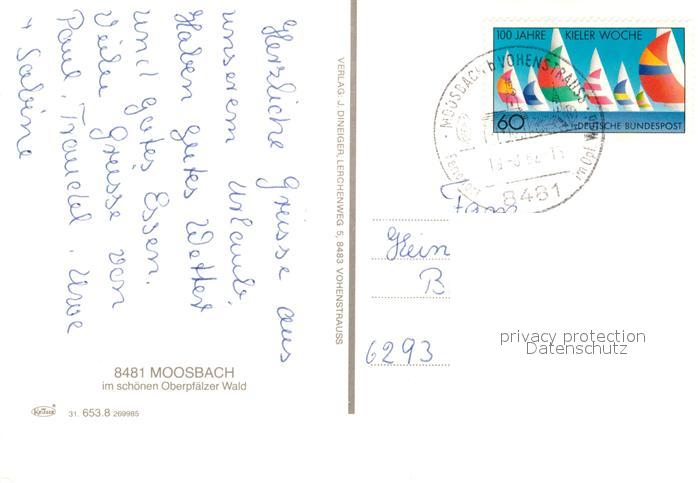 Herzliche Grüsse aus
unserem Urlaub.
Haben gutes Wetter
und gutes Essen.
Viele Grüsse von
Paul, Traudel, Uwe
+ Sabine
8481 MOOSBACH
im schönen Oberpfälzer Wald
Krüger 31. 653.8 269985
VERLAG J. DINEIGER, LERCHENWEG 5, 8483 VOHENSTRAUSS
100 JAHRE KIELER WOCHE
60 DEUTSCHE BUNDESPOST
MOOSBACH, b VOHENSTRAUSS
8481
Fam.
Hein
B
6293
privacy protection
Datenschutz